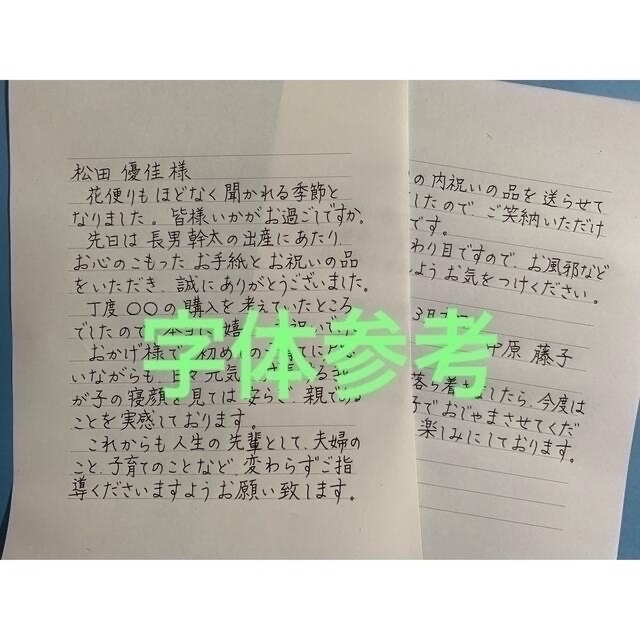 松田 優佳 様
花便りも ほどなく 聞かれる 季節と
なりました。皆様いかがお過ごしですか。
先日は 長男 幹太の出産にあたり、
お心のこもった お手紙と お祝いの品
をいただき、誠に ありがとうございました。
丁度 〇〇の購入を 考えていたところ
でしたので
おかげ様で 初めての
いながらも、日々 元気
が子の 寝顔を 見ては 安らぎ、親である
ことを 実感しております。
これからも 人生の 先輩として、夫婦の
こと、子育てのことなど、変わらずご指
導くださいますよう お願い致します。
の 内祝いの品を 送らせて
したので、ご笑納いただけ
です。
わり目ですので、お風邪など
よう お気をつけください。
3月
中原 藤子
落ち着きましたら、今度は
子で おじゃまさせてくだ
楽しみにしております。
字体参考